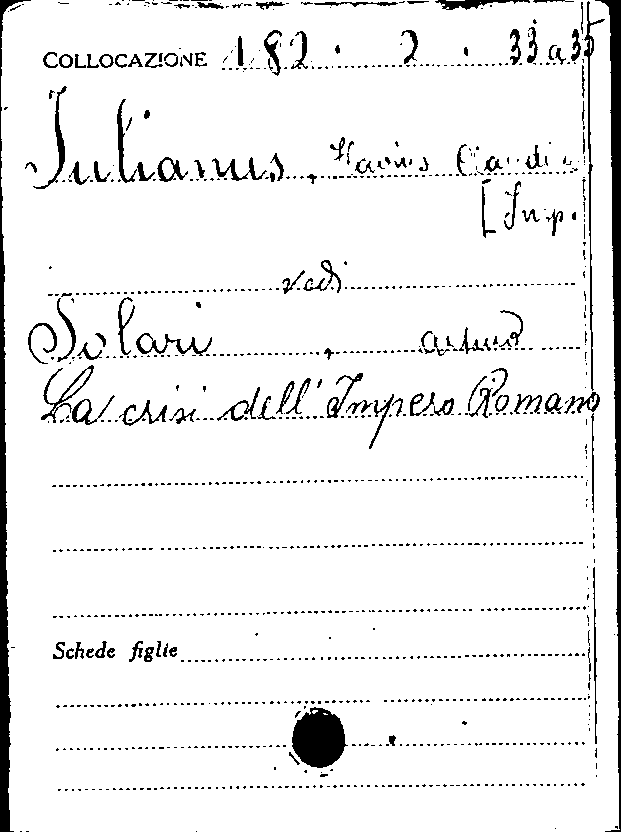 COLLOCAZIONE 182. 2. 33 a 35
Iulianus, Flavius Claudius
[Imp.
vedi
Solari, Arturo
La crisi dell'Impero Romano
Schede figlie